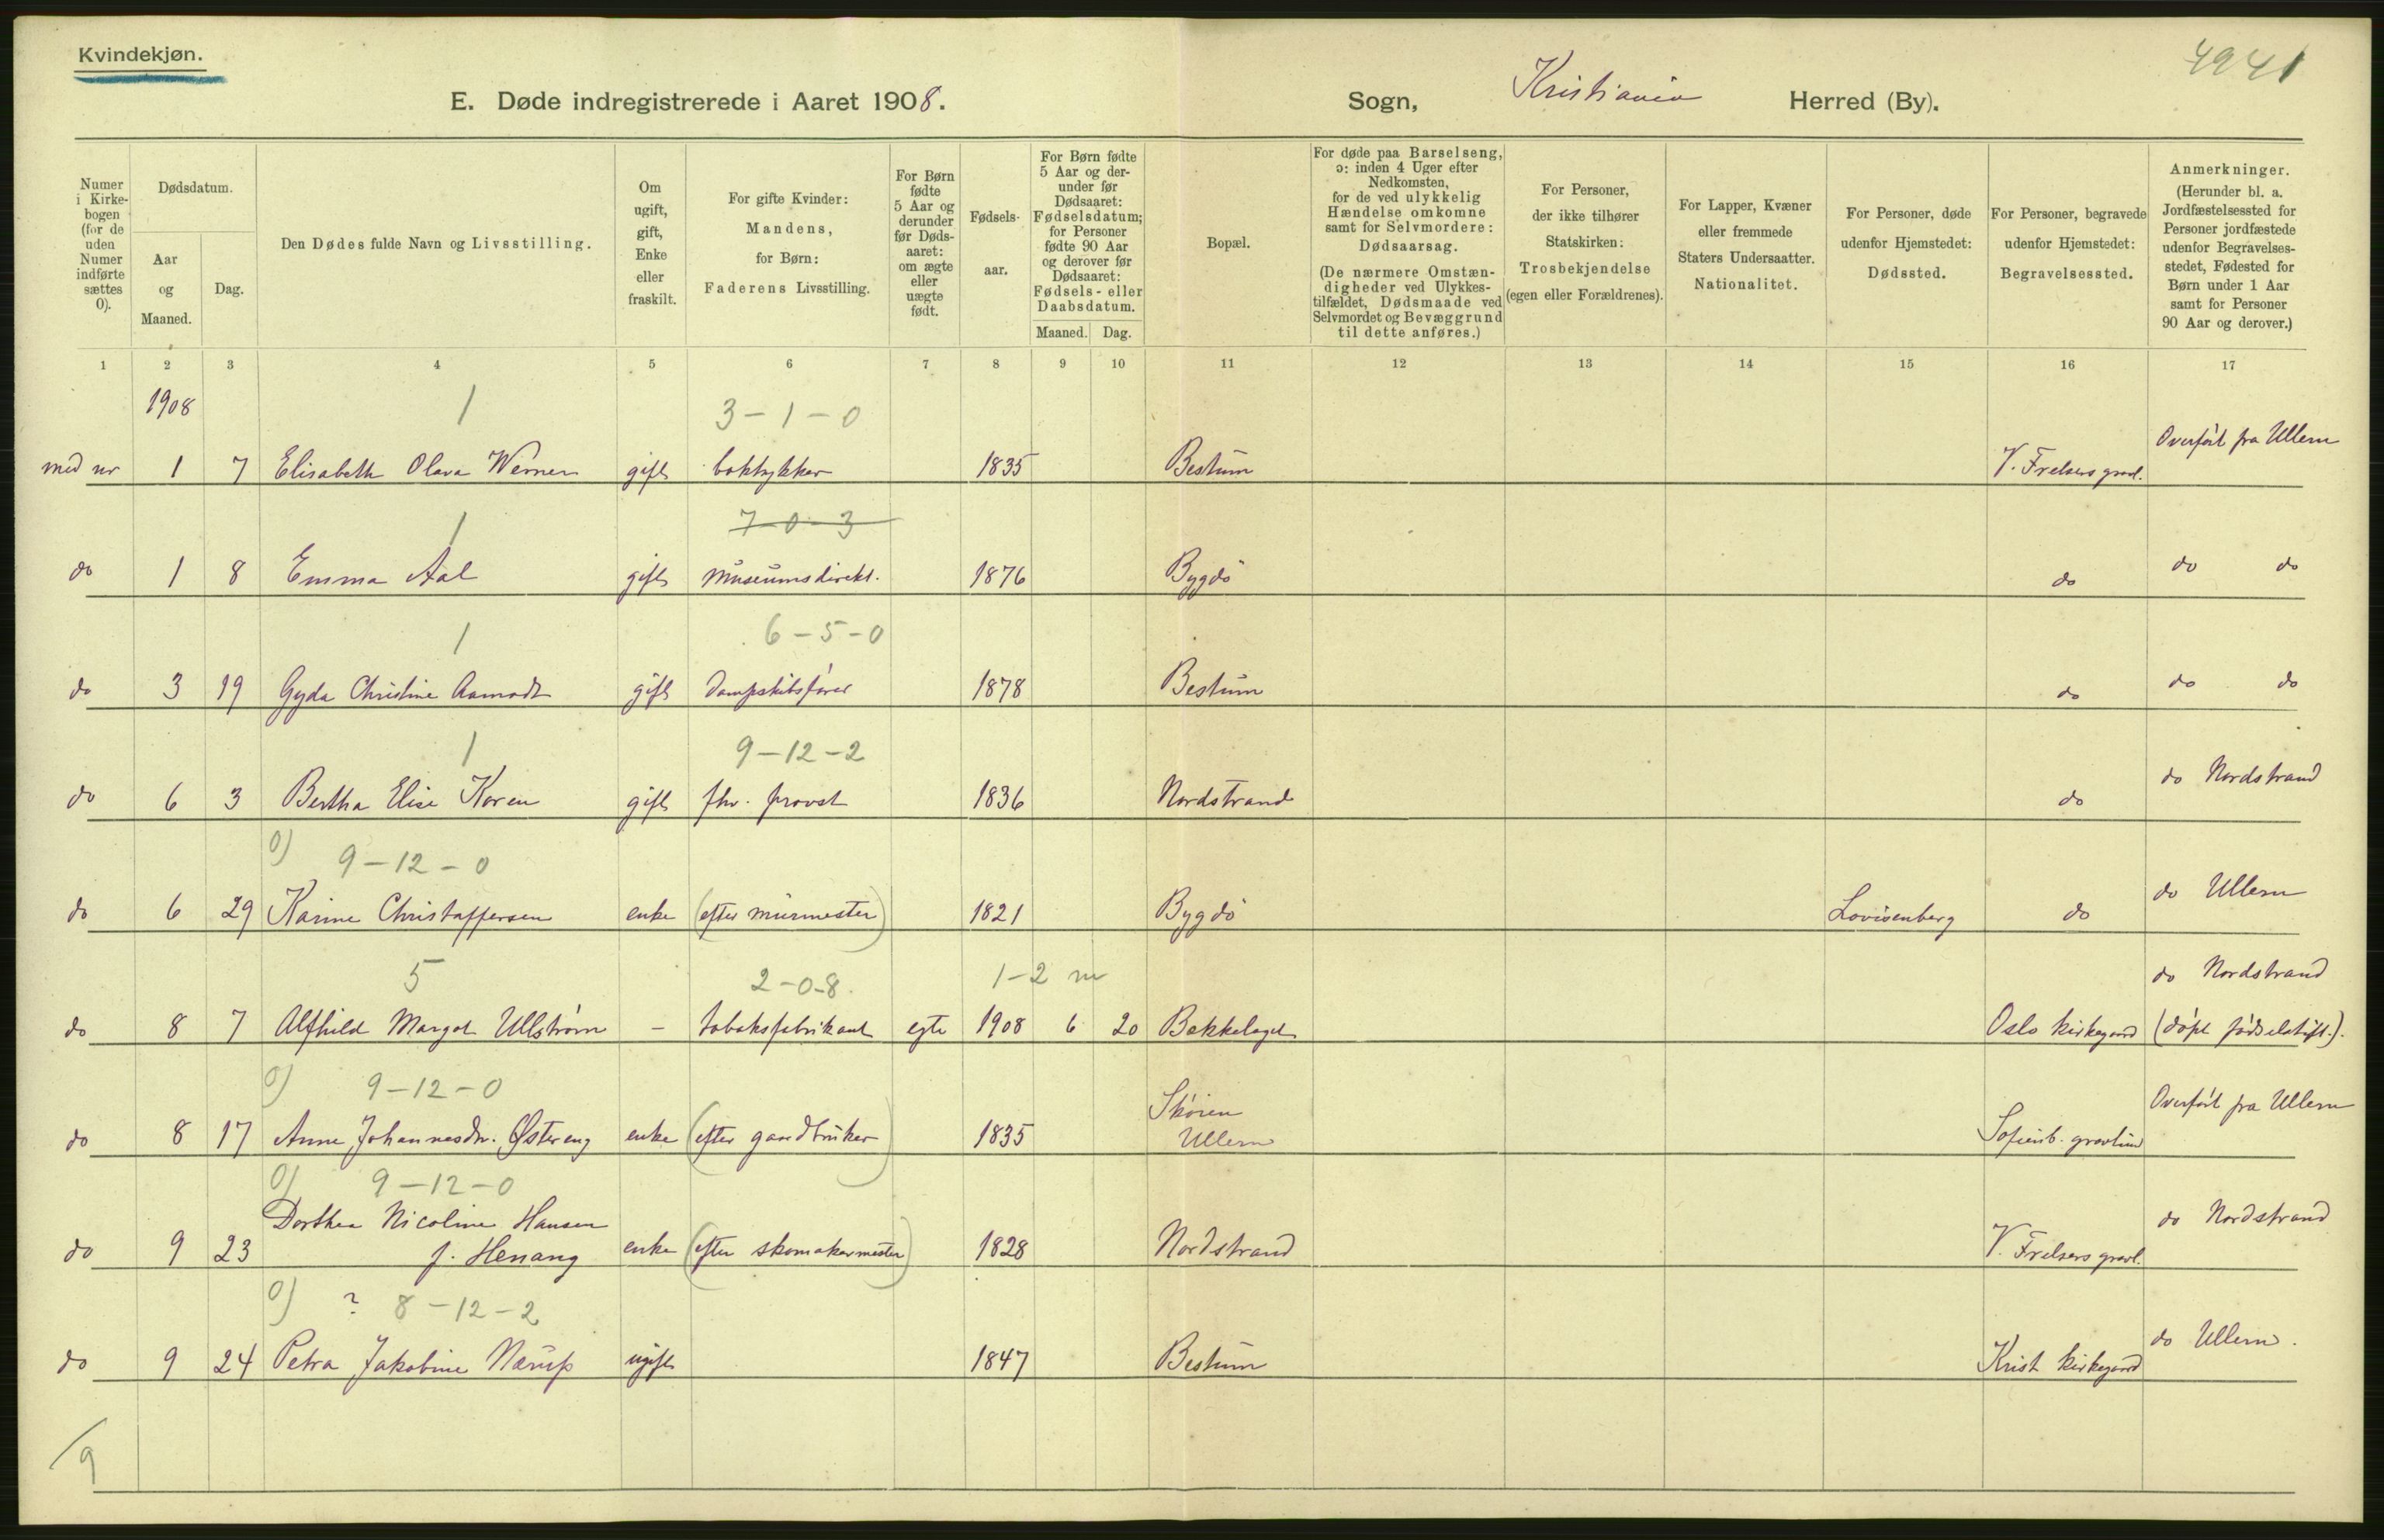 Kvindekjøn.
4941
E. Døde indregistrerede i Aaret 1908. Sogn, Kristiania Herred (By).
Numer i Kirkebogen (for de uden Numer indførte sættes 0).
Dødsdatum.
Aar og Maaned.
Dag.
Den Dødes fulde Navn og Livsstilling.
Om ugift, gift, Enke eller fraskilt.
For gifte Kvinder: Mandens, for Børn: Faderens Livsstilling.
For Børn fødte 5 Aar og derunder før Dødsaaret: om ægte eller uægte født.
Fødselsaar.
For Børn fødte 5 Aar og derunder før Dødsaaret: Fødselsdatum; for Personer fødte 90 Aar og derover før Dødsaaret: Fødsels- eller Daabsdatum.
Maaned. Dag.
Bopæl.
For døde paa Barselseng, ɔ: inden 4 Uger efter Nedkomsten, for de ved ulykkelig Hændelse omkomne samt for Selvmordere: Dødsaarsag. (De nærmere Omstændigheder ved Ulykkestilfældet, Dødsmaade ved Selvmordet og Bevæggrund til dette anføres.)
For Personer, der ikke tilhører Statskirken: Trosbekjendelse (egen eller Forældrenes).
For Lapper, Kvæner eller fremmede Staters Undersaatter. Nationalitet.
For Personer, døde udenfor Hjemstedet: Dødssted.
For Personer, begravede udenfor Hjemstedet: Begravelsessted.
Anmerkninger. (Herunder bl. a. Jordfæstelsessted for Personer jordfæstede udenfor Begravelsesstedet, Fødested for Børn under 1 Aar samt for Personer 90 Aar og derover.)
1 2 3 4 5 6 7 8 9 10 11 12 13 14 15 16 17
1908 1 3-1-0
med nr 1 7 Elisabeth Olava Werner gift boktykker 1835 Bestum V. Frelsers gravl. Overført fra Ullern
1 7-0-3
do 1 8 Emma Aal gift museumsdirekt. 1876 Bygdö do do do
1 6-5-0
do 3 19 Gyda Christine Aamodt gift dampskibsfører 1878 Bestum do do do
1 9-12-2
do 6 3 Bertha Elise Koren gift fhv. provst 1836 Nordstrand do do Nordstrand
0) 9-12-0
do 6 29 Karine Christoffersen enke (efter murmester) 1821 Bygdö Lovisenberg do do Ullern
5 2-0-8. 1-2 m
do 8 7 Alfhild Margot Ullstrøm - tobaksfabrikant egte 1908 6 20 Bekkelaget Oslo kirkegaard do Nordstrand (døpt fødselstift.).
0) 9-12-0
do 8 17 Anne Johannesdr. Østereng enke (efter gaardbruker) 1835 Skøien Ullern Sofienb. gravlund Overført fra Ullern
0) 9-12-0
do 9 23 Dorthea Nicoline Hansen f. Henang enke (efter skomakermester) 1828 Nordstrand V. Frelsers gravl. do Nordstrand
0) ? 8-12-2
do 9 24 Petra Jakobine Nærup ugift 1847 Bestum Krist kirkegaard do Ullern.
/9